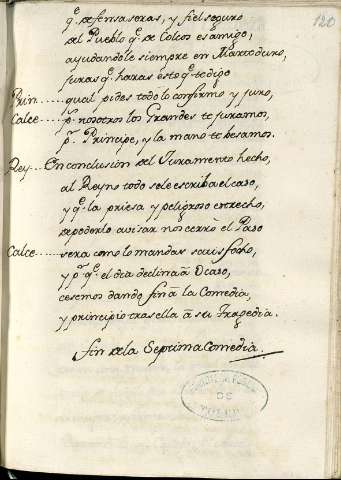 120
q.e defensa seras, y fiel seguro
del Pueblo q.e de Colcos es amigo,
ayudandole siempre en Marte duro,
juras q.e haras esto q.e te digo
Prin......qual pides todo lo confirmo y juro,
Calce.....p.r nosotros los Grandes te juramos,
p.r Principe, y la mano te besamos.
Rey....En conclusion del Juramento hecho,
al Reyno todo se le escriba el caso,
y q.e la priesa y peligroso estrecho,
de poderlo avisar nos cerrò el Paso
Calce.....sera como lo mandas satisfecho,
y p.r q.e el dia declina â Ocaso,
cesemos dando fin â la Comedia,
y principio tras ella â su Tragedia.
fin de la Septima Comedia.
DE